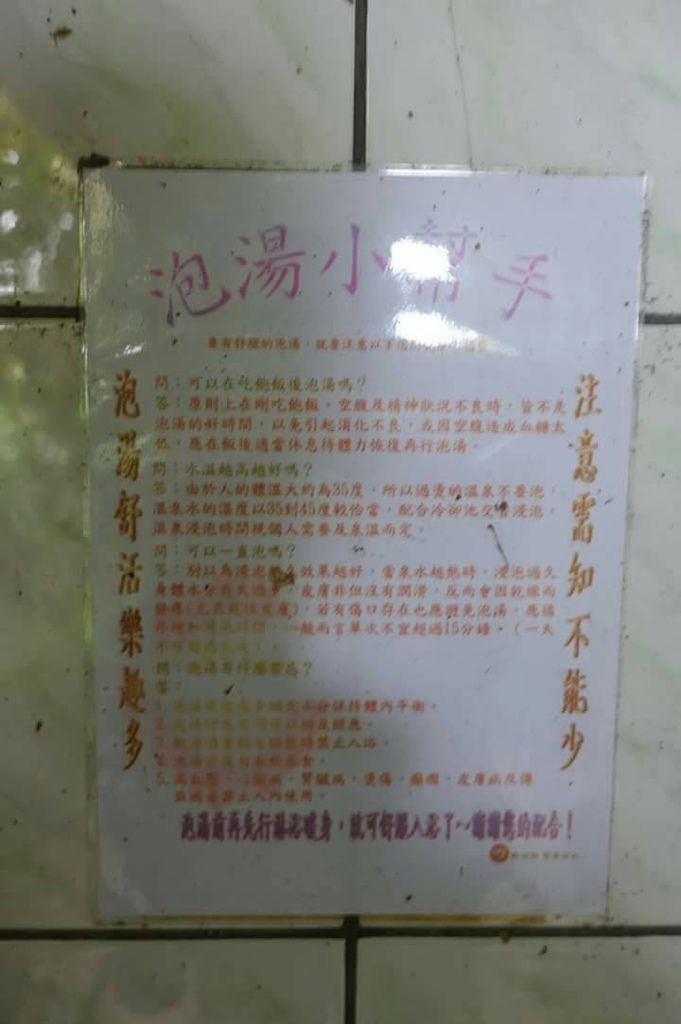 泡湯小幫手
要有舒服的泡湯，就要注意以下
泡湯舒活樂趣多
注意需知不能少
問：可以在吃飽飯後泡湯嗎？
答：原則上在剛吃飽飯、空腹及精神狀況不良時，皆不是
泡湯的好時間，以免引起消化不良，或因空腹造成血糖太
低，應在飯後適當休息待體力恢復再行泡湯。
問：水溫越高越好嗎？
答：由於人的體溫大約為35度，所以過燙的溫泉不要泡，
溫泉水的溫度以35到45度較恰當，配合冷卻池交替浸泡，
溫泉浸泡時間視個人需要及泉溫而定。
問：可以一直泡嗎？
答：別以為浸泡越久效果越好，當泉水越熱時，浸泡過久
身體水分喪失過多，皮膚非但沒有潤滑，反而會因乾燥而
，若有傷口存在也應避免泡湯，應循
時間，一般而言單次不宜超過15分鐘。（一天
問：泡湯有什麼禁忌？
答：
1. 水分保持體內平衡。
2.
3. 禁止入浴。
4.
5. 高血壓、心臟病、腎臟病、燙傷、癲癇、皮膚病及傳
染病者禁止入內使用。
泡湯前再先行淋浴暖身，就可舒服入浴了~謝謝您的配合！